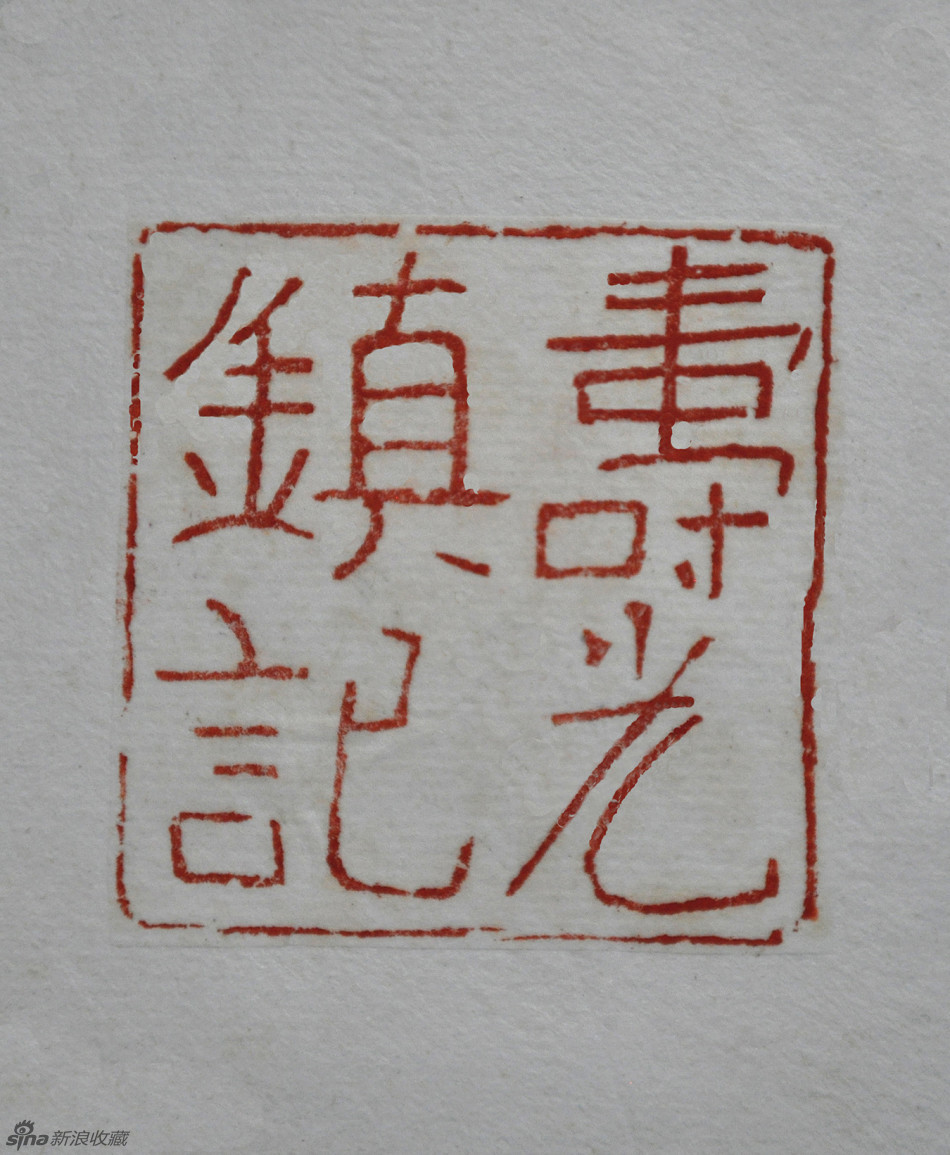 壽光
鎮記
sina新浪收藏